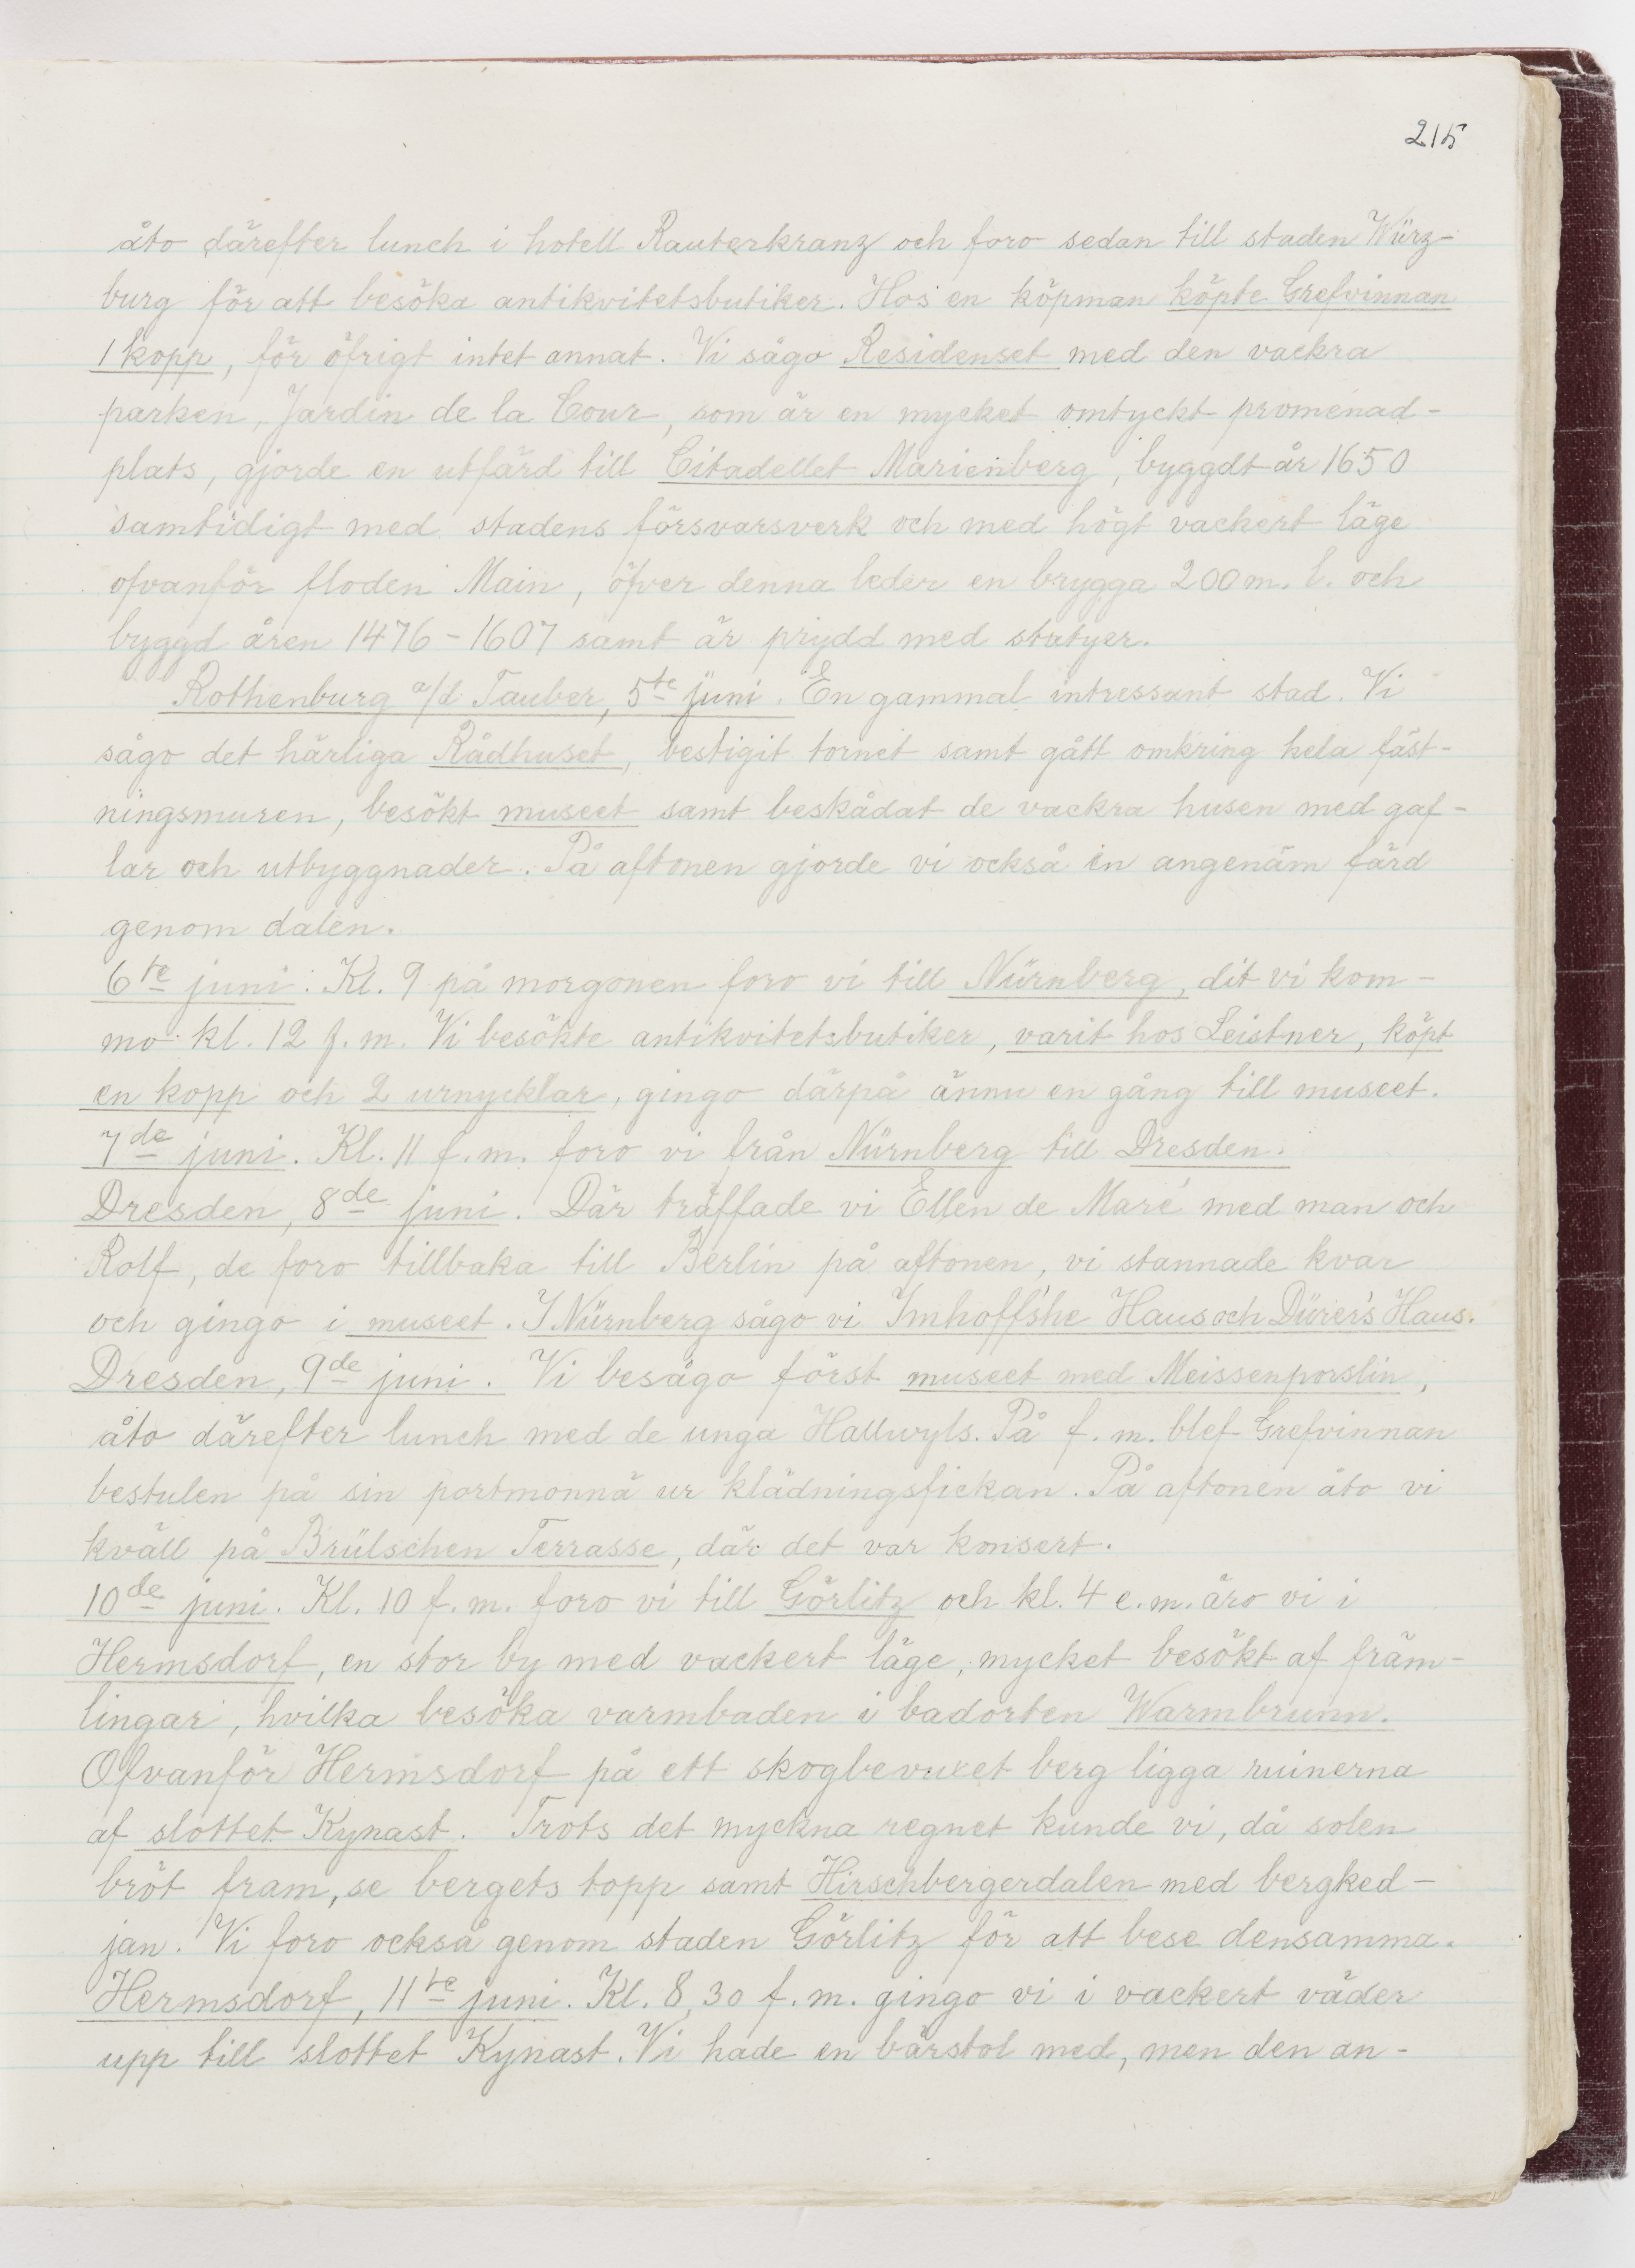 215
åto därefter lunch i hotell Rauterkranz och foro sedan till staden Würz-
burg för att besöka antikvitetsbutiker. Hos en köpman köpte Grefvinnan
1 kopp, för öfrigt intet annat. Vi sågo Residenset med den vackra
parken, Jardin de la Cour, som är en mycket omtyckt promenad-
plats, gjorde en utfärd till Citadellet Marienberg, byggdt år 1650
samtidigt med stadens försvarsverk och med högt vackert läge
ofvanför floden Main, öfver denna leder en brygga 200 m. l. och
byggd åren 1476-1607 samt är prydd med statyer.
Rothenburg a/d Tauber, 5te juni. En gammal intressant stad. Vi
sågo det härliga Rådhuset, bestigit tornet samt gått omkring hela fäst-
ningsmuren, besökt museet samt beskådat de vackra husen med gaf-
lar och utbyggnader. På aftonen gjorde vi också en angenäm färd
genom dalen.
6te juni. Kl. 9 på morgonen foro vi till Nürnberg, dit vi kom-
mo kl. 12 f. m. Vi besökte antikvitetsbutiker, varit hos Leistner, köpt
en kopp och 2 urnycklar, gingo därpå ännu en gång till museet.
7de juni. Kl. 11 f. m. foro vi från Nürnberg till Dresden.
Dresden, 8de juni. Där träffade vi Ellen de Maré med man och
Rolf, de foro tillbaka till Berlin på aftonen, vi stannade kvar
och gingo i museet. I Nürnberg sågo vi Imhoff'she Haus och Dürer's Haus.
Dresden, 9de juni. Vi besågo först museet med Meissenporslin,
åto därefter lunch med de unga Hallwyls. På f. m. blef Grefvinnan
bestulen på sin portmonnä ur klädningsfickan. På aftonen åto vi
kväll på Brülschen Terrasse, där det var konsert.
10de juni. Kl. 10 f. m. foro vi till Görlitz och kl. 4 e. m. äro vi i
Hermsdorf, en stor by med vackert läge, mycket besökt af främ-
lingar, hvilka besöka varmbaden i badorten Warmbrunn.
Ofvanför Hermsdorf på ett skogbevuxet berg ligga ruinerna
af slottet Kynast. Trots det myckna regnet kunde vi, då solen
bröt fram, se bergets topp samt Hirschbergerdalen med bergked-
jan. Vi foro också genom staden Görlitz för att bese densamma.
Hermsdorf, 11te juni. Kl. 8,30 f. m. gingo vi i vackert väder
upp till slottet Kynast. Vi hade en bärstol med, men den an-